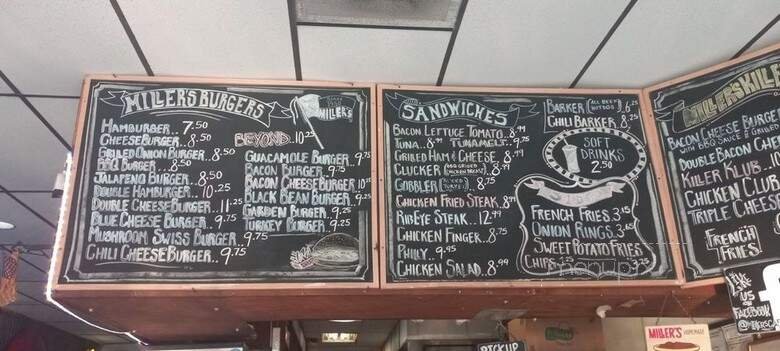 MILLER'S BURGERS
MILLER'S
HAMBURGER.. 7.50
CHEESEBURGER.. 8.50
GRILLED ONION BURGER.. 8.50
BBQ BURGER.. 8.50
JALAPENO BURGER 8.50
DOUBLE HAMBURGER.. 10.25
DOUBLE CHEESE BURGER.. 11.25
BLUE CHEESE BURGER.. 9.75
MUSHROOM SWISS BURGER.. 9.75
CHILI CHEESE BURGER.. 9.75
BEYOND.. 10.25
GUACAMOLE BURGER.. 9.75
BACON BURGER.. 9.75
BACON CHEESE BURGER 10.25
BLACK BEAN BURGER.. 9.25
GARDEN BURGER.. 9.25
TURKEY BURGER.. 9.25
SANDWICHES
BACON LETTUCE TOMATO.. 8.99
TUNA.. 8.99 TUNA MELT.. 9.75
GRILLED HAM & CHEESE.. 8.99
CLUCKER (BBQ GRILLED CHICKEN BREAST) 8.99
GOBBLER 8.75
CHICKEN FRIED STEAK.. 8.99
RIBEYE STEAK.. 12.99
CHICKEN FINGER.. 8.75
PHILY.. 9.95
CHICKEN SALAD.. 8.99
BARKER (ALL BEEF HOT DOG) 6.25
CHILI BARKER.. 8.25
SOFT
DRINKS
2.50
SIDES
FRENCH FRIES.. 3.15
ONION RINGS.. 3.95
SWEET POTATO FRIES
CHIPS.. 1.25
BACON CHEESE BURGE
WITH BBQ SAUCE & GRILLED
DOUBLE BACON CHEE
KILLER KLUB..
CHICKEN CLUB
TRIPLE CHEES
FRENCH
FRIES
LIKE
US ON
FACEBOOK
PICKUP
MILLER'S HOMEMADE